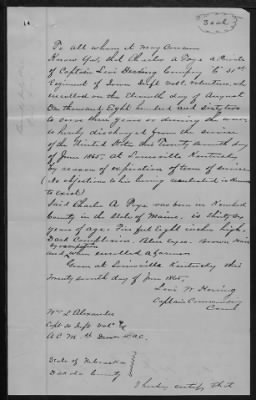 To all whom it may Concern
Know Ye, that Charles a Page a Private
of Captain Levi Company to 31st
Regiment of Iowa Inft vols. volunteers who
enrolled on the Eleventh day of August
One thousand Eight hundred and Sixty two
to serve three years or during the war
is hereby discharged from the service
of the United States this Twenty Seventh day
of June 1865, at Louisville Kentucky
by reason of expiration of term of service
(No objections to his being reenlisted is known
to exist)
Said Charles A Page was born in
County in the State of Maine. is thirty six
years of age. Five feet Eight inches high.
Dark Complexion. Blue eyes. Brown hair
by occupation
and when enrolled a farmer
Given at Louisville Kentucky this
Twenty Seventh day of June 1865.
Levi
Captain Commanding
Wm L Alexander
Capt Inft Vols
A.C.M.
State of Nebraska
County
I hereby certify that